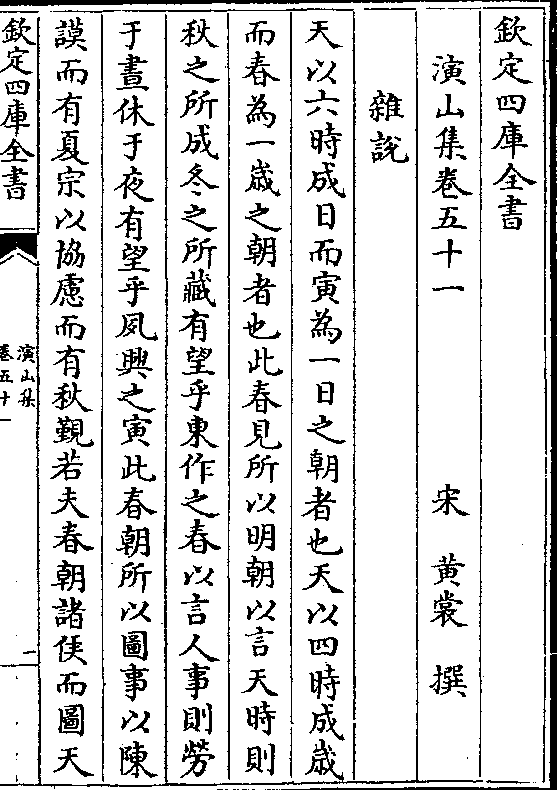 欽定四庫全書
演山集卷五十一 宋 黄裳 撰
雜説
天以六時成日而寅為一日之朝者也天以四時成歳
而春為一歳之朝者也此春見所以明朝以言天時則
秋之所成冬之所藏有望乎東作之春以言人事則勞
于晝休于夜有望乎夙興之寅此春朝所以圖事以陳
謨而有夏宗以協慮而有秋覲若夫春朝諸侯而圖天
欽定四庫全書
演山集
卷五十一
一